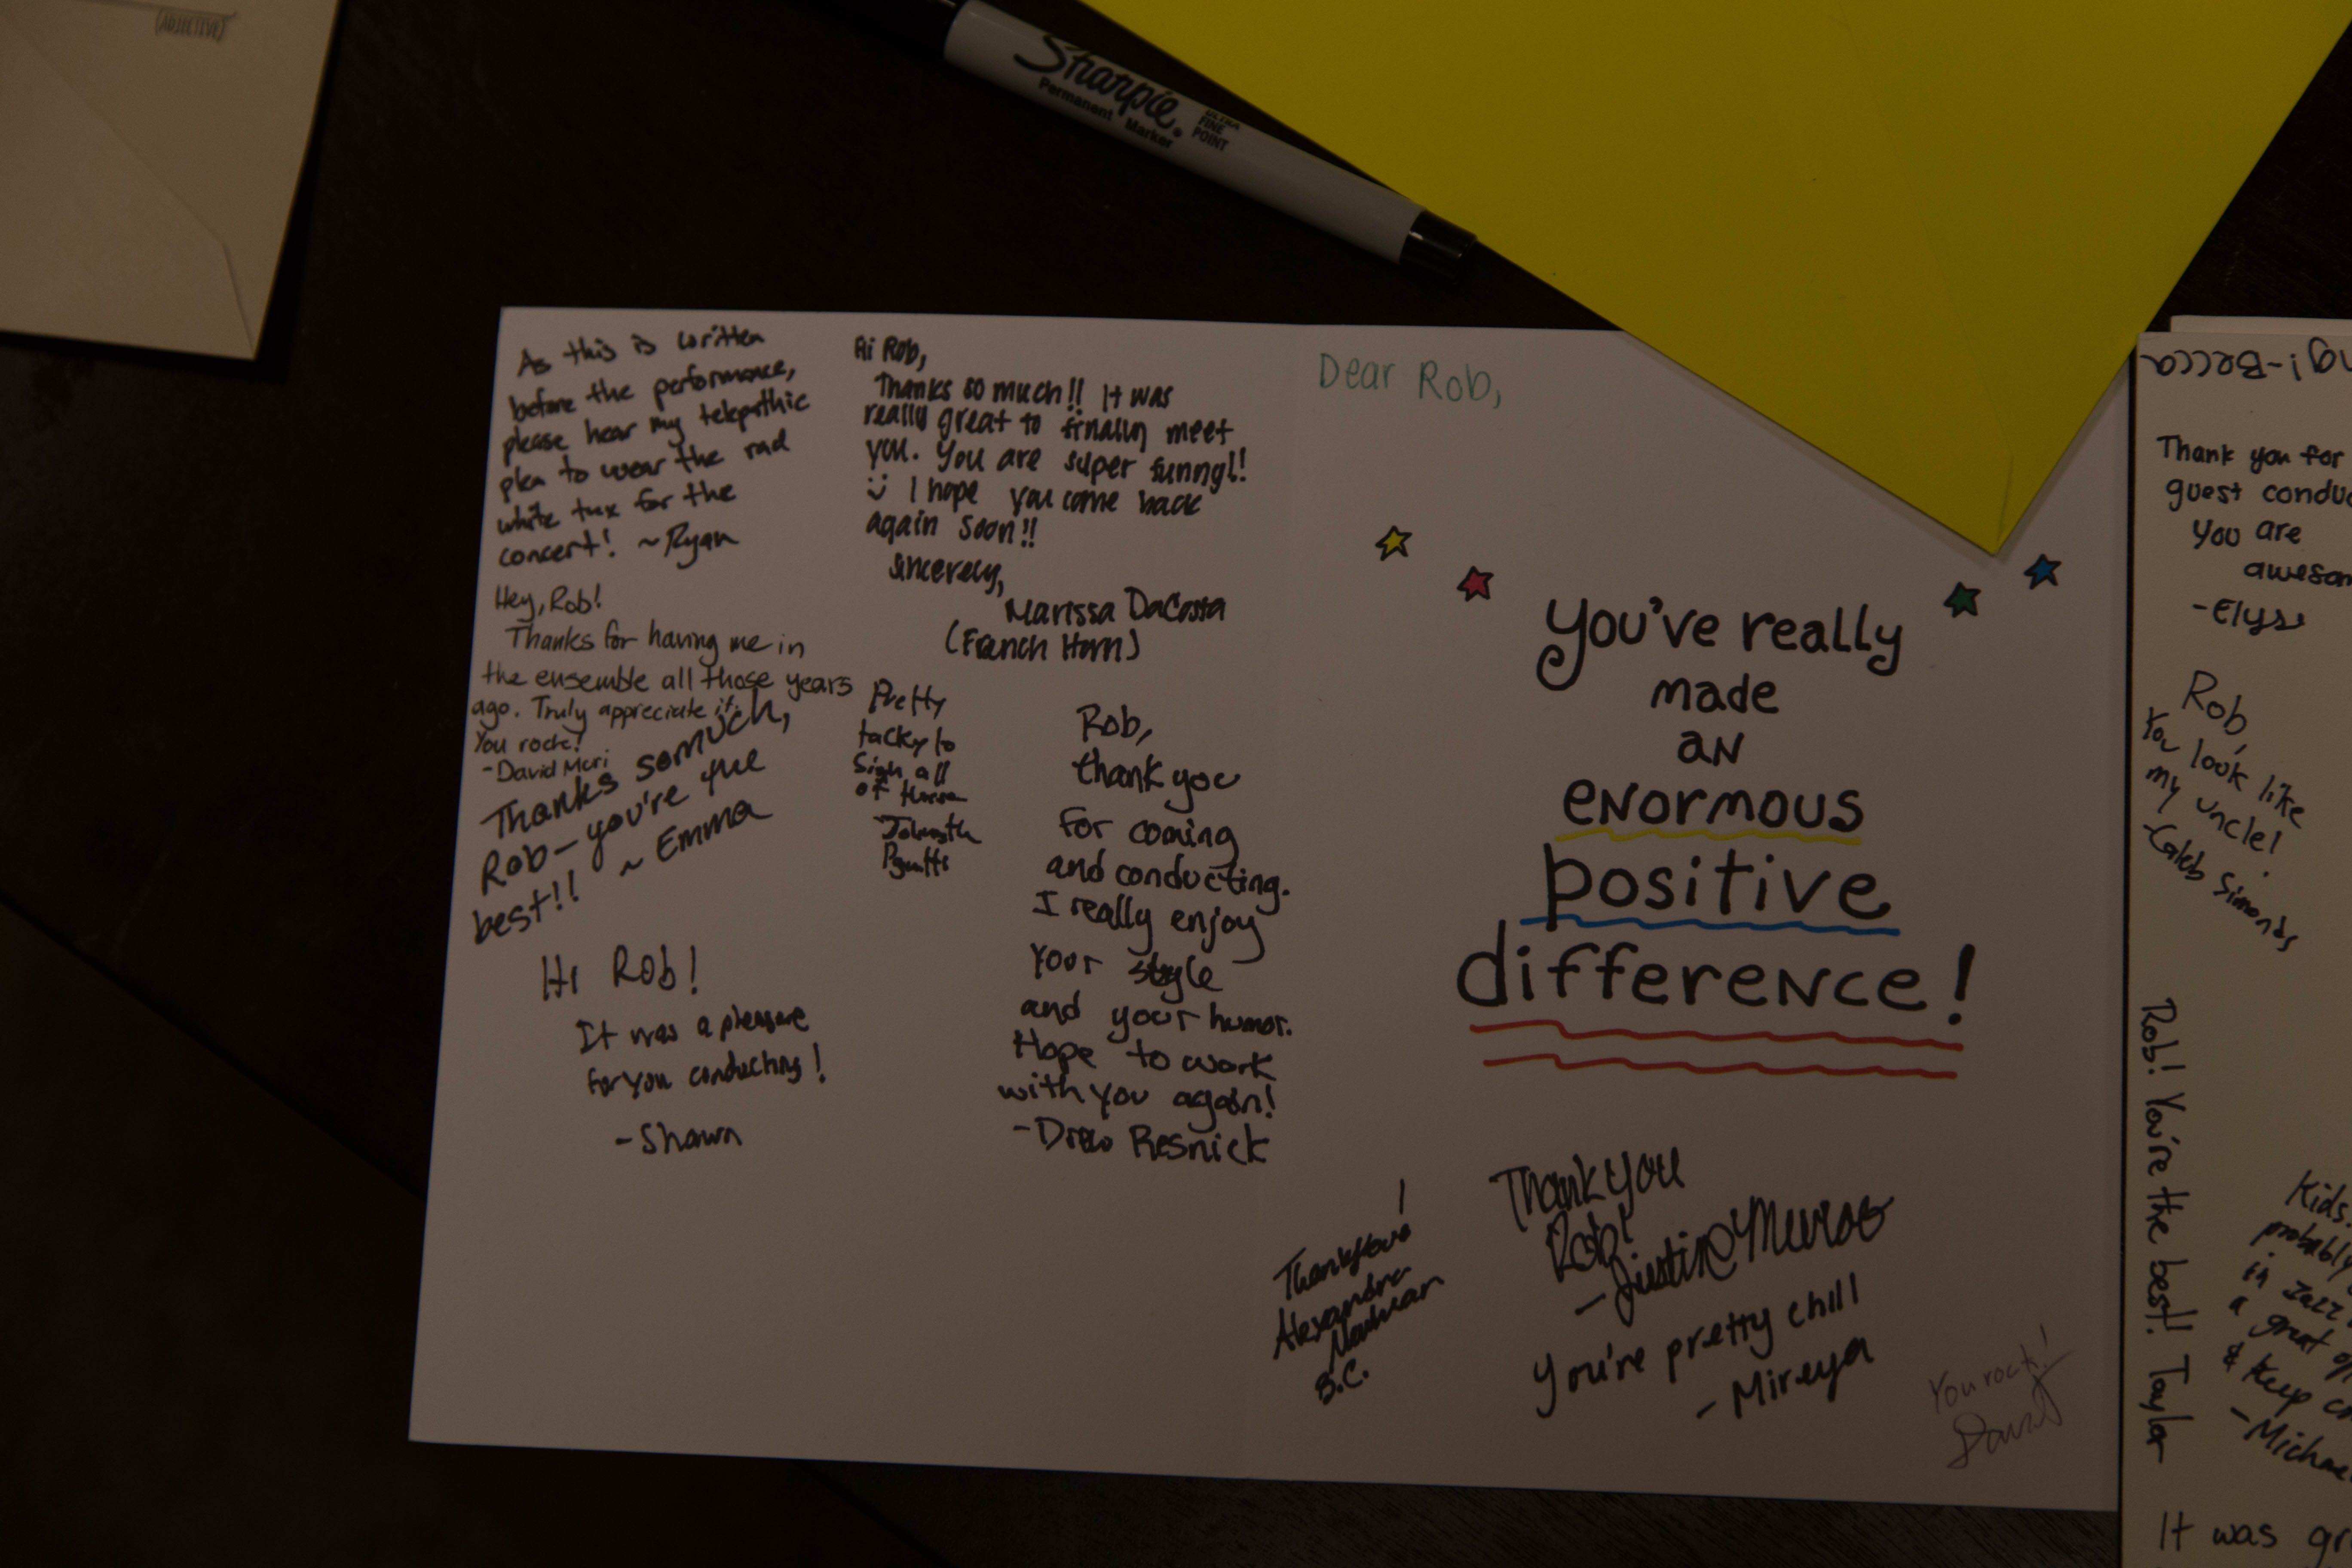 (ADJECTIVE)
Sharpie.
Permanent Marker
ULTRA
FINE
POINT
As this is written
before the performance,
please hear my telepathic
plea to wear the rad
white tux for the
concert! ~Ryan
Hey, Rob!
Thanks for having me in
the ensemble all those years
ago. Truly appreciate it.
You rock!
-David
Thanks so much,
Rob-you're the
best!! ~ Emma
Hi Rob!
It was a pleasure
for you conducting!
-Shawn
Hi Rob,
Thanks so much!! It was
really great to finally meet
you. You are super funny!!
I hope you come back
again soon!!
Sincerely,
Marissa DaCosta
(French Horn)
Pretty
tacky to
sign all
of
Rob,
thank you
for coming
and conducting.
I really enjoy
your style
and your humor.
Hope to work
with you again!
-Drew Resnick
Dear Rob,
you've really
made
an
enormous
positive
difference!
Thank you!
Alexandra
B.C.
Thank you
Rob!
-Justine
you're pretty chill
-Mireya
You rock!
David
-Becca
Thank you for
guest
You are
-Elyse
Rob,
You look like
my uncle!
-Caleb Simonds
Rob! You're the best! Taylor
Kids.
probably
in Jazz
a great
& keep
It was